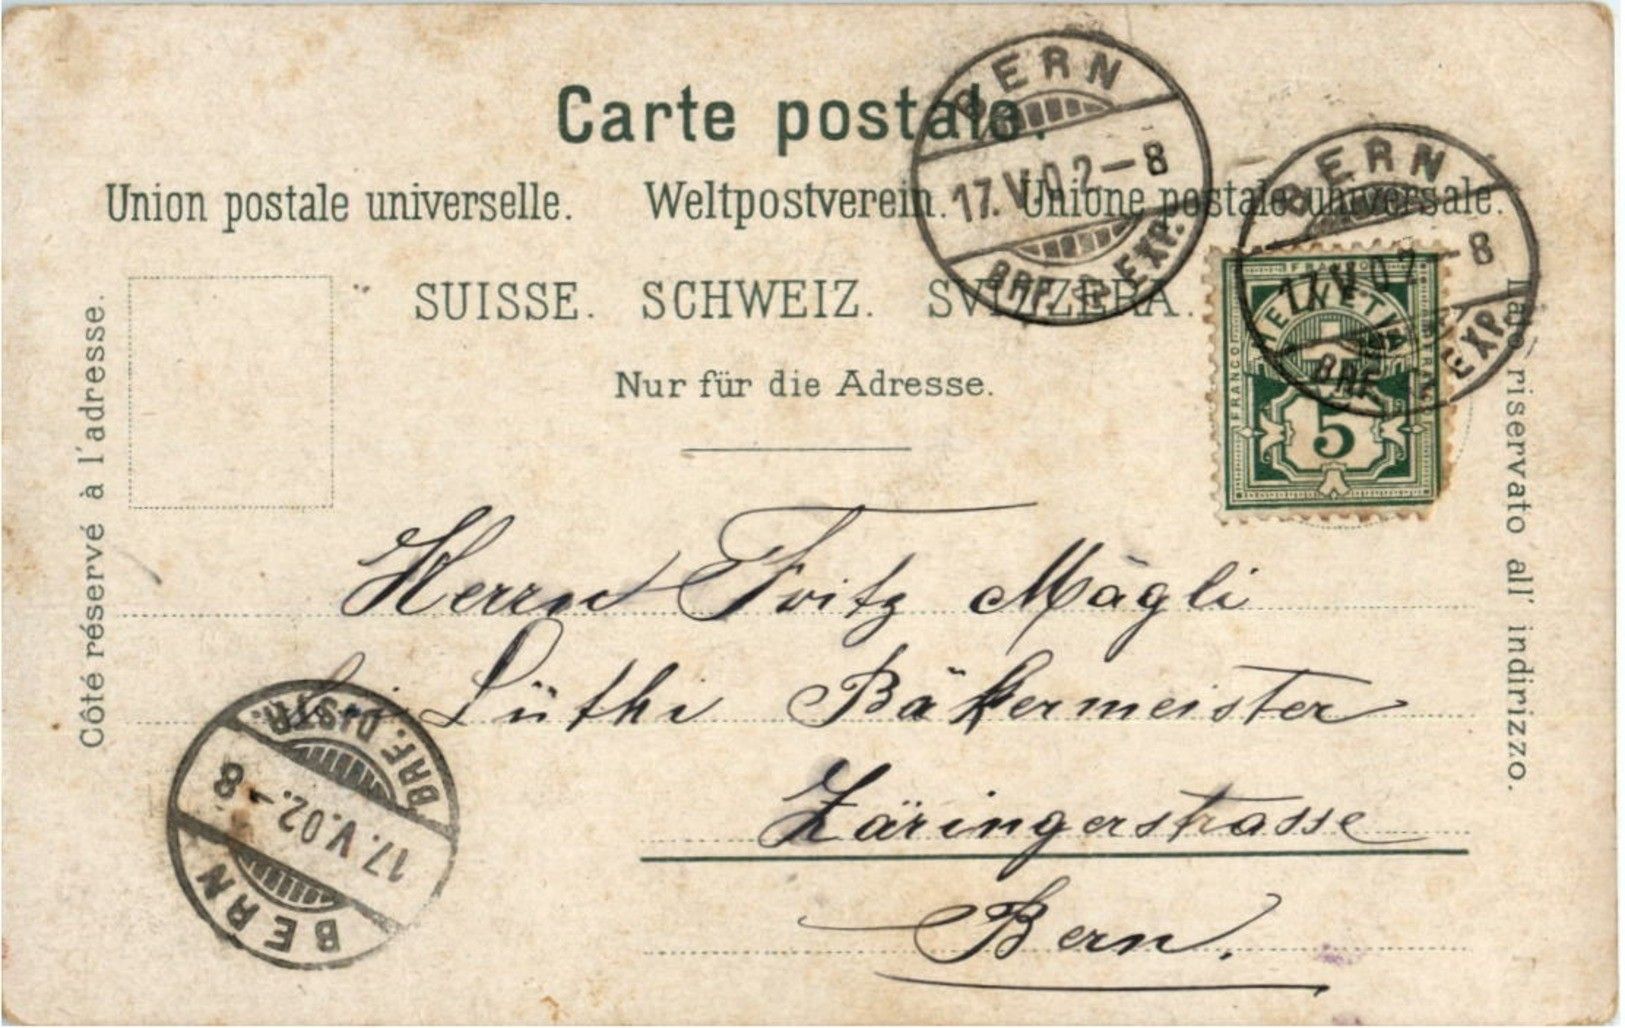 Carte postale.
Union postale universelle. Weltpostverein. Unione postale universale.
SUISSE. SCHWEIZ. SVIZZERA.
Nur für die Adresse.
Côté réservé à l'adresse.
Lato riservato all' indirizzo.
BERN
17.V.02-8
BRF. EXP.
BERN
17.V.02-8
BRF. EXP.
FRANCO
HELVETIA
FRANCO
FRANCO
5
Herrn Fritz Mägli
bei Lüthi Bäkermeister
Zäringerstrasse
Bern.
BRF. DISTR.
17.V.02.-8
BERN